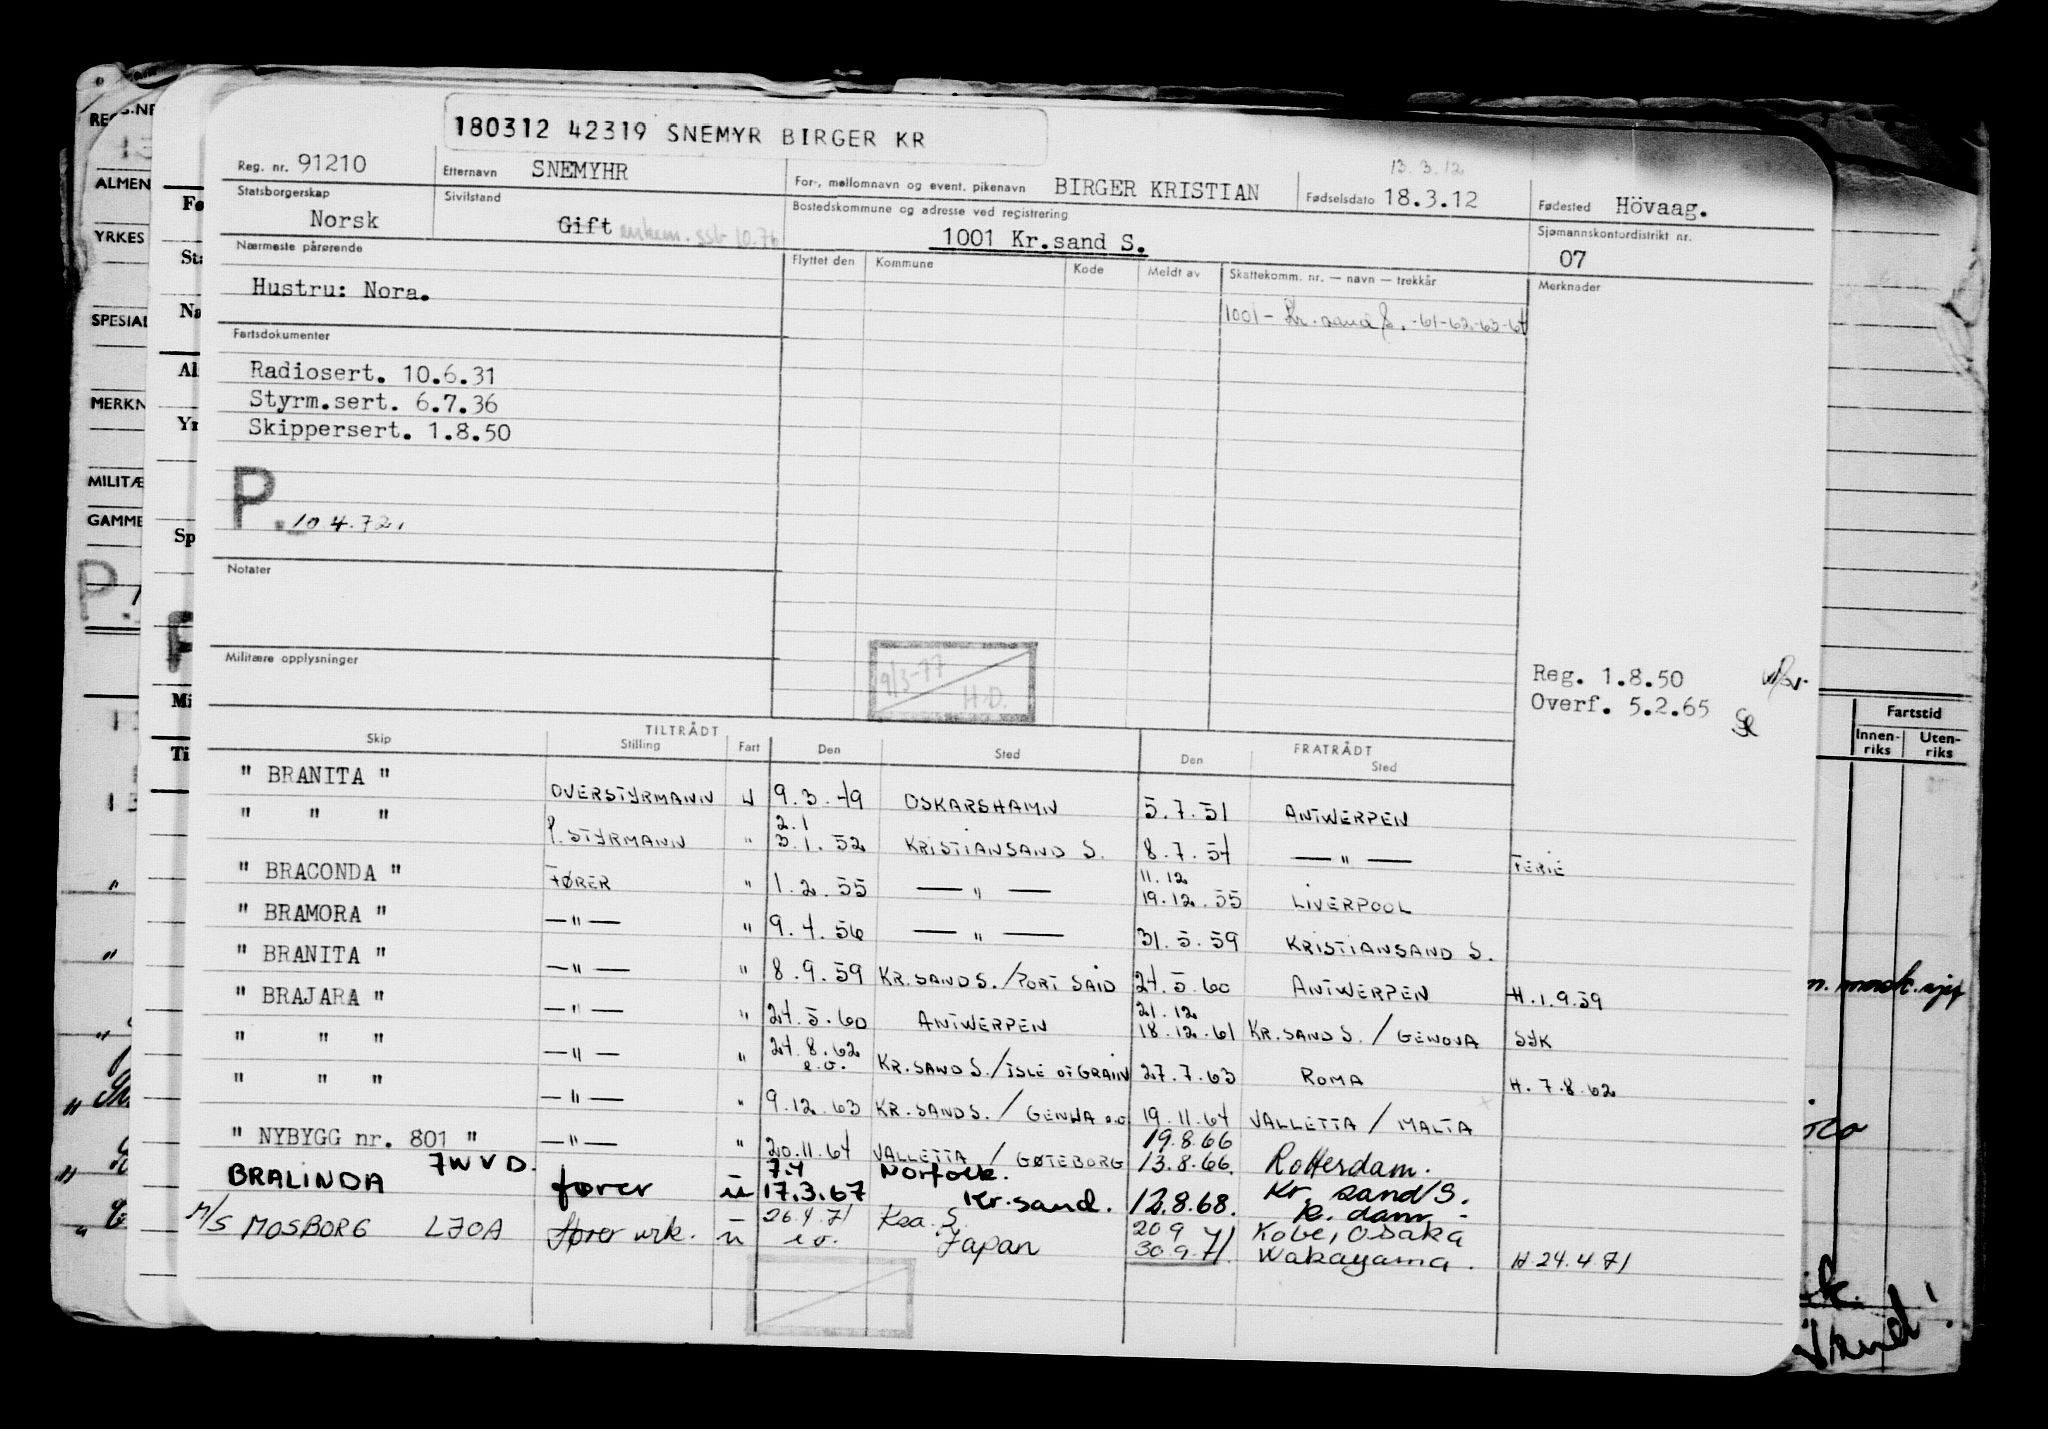 180312 42319 SNEMYR BIRGER KR
Reg. nr. 91210 Etternavn SNEMYHR For-, mellomnavn og event. pikenavn BIRGER KRISTIAN 13.3.12 Fødselsdato 18.3.12 Fødested Hövaag.
Statsborgerskap Norsk Sivilstand Gift enkem. ssb 10.76 Bostedskommune og adresse ved registrering 1001 Kr.sand S. Sjømannskontordistrikt nr. 07
Nærmeste pårørende Flyttet den Kommune Kode Meldt av Skattekomm. nr. — navn — trekkår Merknader
Hustru: Nora. 1001 - Kr. sand S. -61-62-63-64
Fartsdokumenter
Radiosert. 10.6.31
Styrm.sert. 6.7.36
Skippersert. 1.8.50
P. 10.4.72.
Notater
Militære opplysninger
9/3-77
H.D.
Reg. 1.8.50
Overf. 5.2.65
TILTRÅDT FRATRÅDT
Skip Stilling Fart Den Sted Den Sted
" BRANITA " OVERSTYRMANN U 9.3.49 OSKARSHAMN 5.7.51 ANTWERPEN
" " " 1. STYRMANN " 2.1 3.1.52 KRISTIANSAND S. 8.7.54 — " — FERIE
" BRACONDA " FØRER " 1.2.55 — " — 11.12 19.12.55 LIVERPOOL
" BRAMORA " — " — " 9.4.56 — " — 31.5.59 KRISTIANSAND S.
" BRANITA " — " — " 8.9.59 KR.SAND S./PORT SAID 24.5.60 ANTWERPEN H.1.9.59
" BRAJARA " — " — " 24.5.60 ANTWERPEN 21.12 18.12.61 KR.SAND S. / GENOVA SYK
" " " — " — " 24.8.62 e.o. KR.SAND S./ISLE OF GRAIN 27.7.63 ROMA H. 7.8.62
" " " — " — " 9.12.63 KR.SAND S. / GENUA e.o 19.11.64 VALLETTA / MALTA
" NYBYGG nr. 801 " — " — " 20.11.64 VALLETTA / GØTEBORG 19.8.66 13.8.66. Rotterdam.
BRALINDA 7WVD. fører u 7.4 17.3.67 Norfolk. Kr.sand. 12.8.68. Kr. sand S. R. dam.
M/S MOSBORG LJOA fører urk. u 26.4.71 e.o. Kra. S. Japan 20 9 30 9.71. Kobe, Osaka Wakayama. H.24.4.71
REG.NR
ALMEN
YRKES
SPESIAL
MERKN
MILITÆ
GAMME
P.
Fø
Sta
Na
Al
Yr
Sp
Mi
Ti
Fartstid
Innen-riks Uten-riks